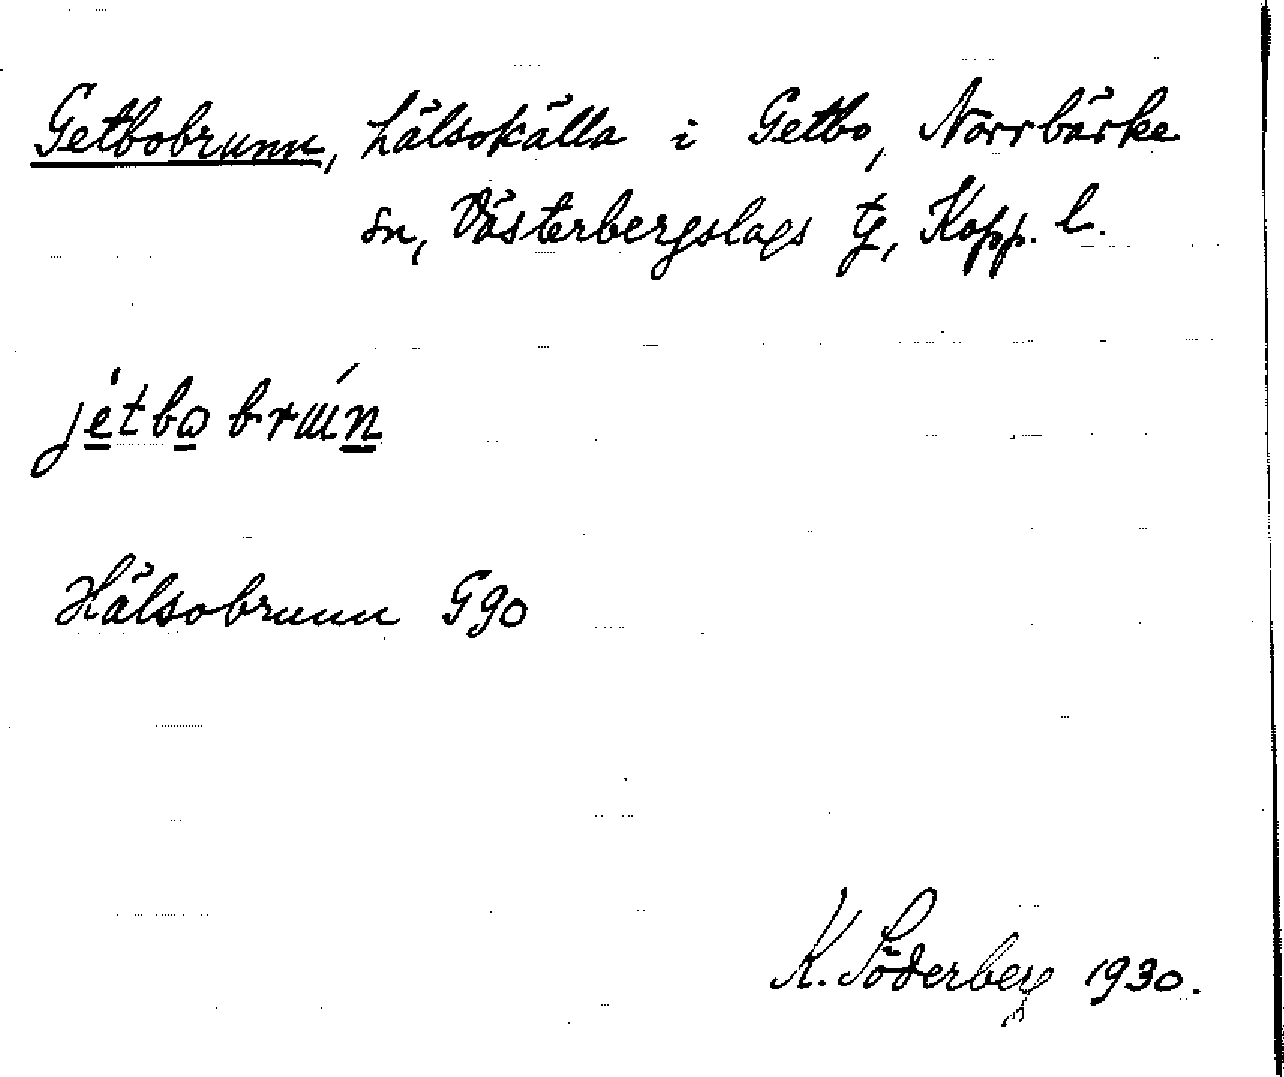 Getbobrunn, hälsokälla i Getbo, Norrbärke
sn, Västerbergslags tg, Kopp. l.
jetbo brun̲
Hälsobrunn G90
K. Söderberg 1930.